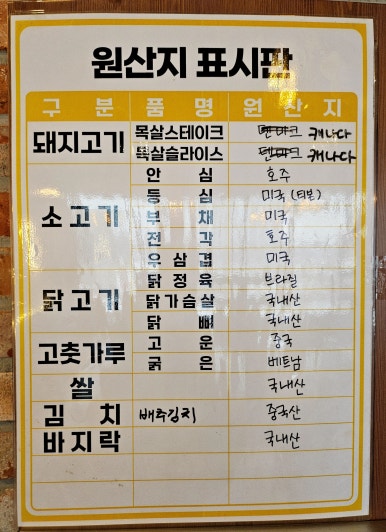 원산지 표시판
구 분 품 명 원 산 지
돼지고기 목살스테이크 덴마크 캐나다
목살슬라이스 덴마크 캐나다
소고기 안 심 호주
등 심 미국 (티본)
부 채 미국
전 각 호주
우 삼 겹 미국
닭고기 닭 정 육 브라질
닭가슴살 국내산
닭 뼈 국내산
고춧가루 고 운 중국
굵 은 베트남
쌀 국내산
김 치 배추김치 중국산
바지락 국내산